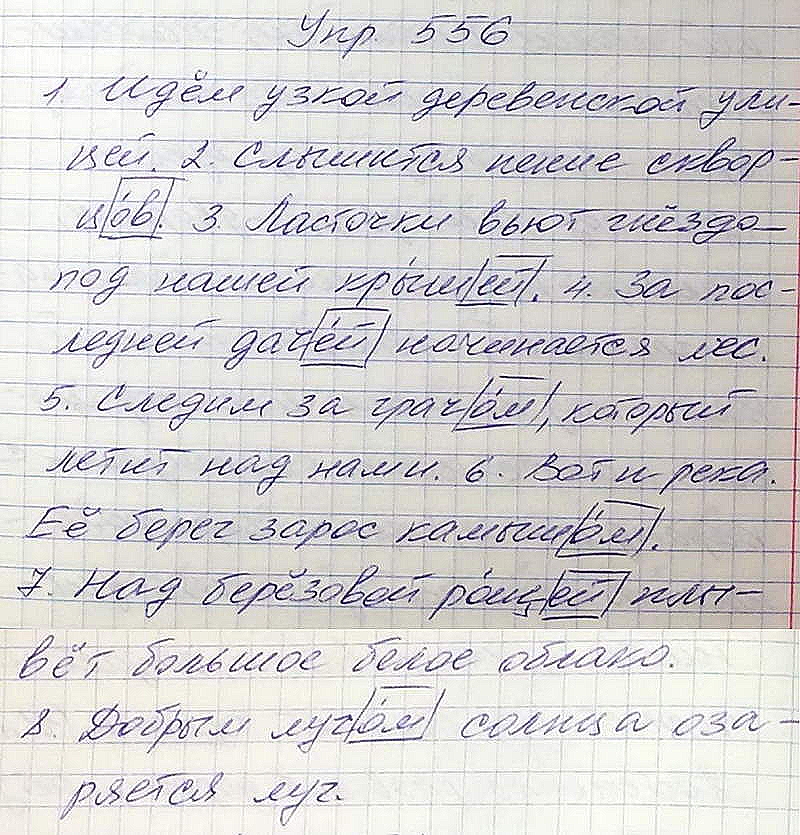 Упр. 556
1. Идём узкой деревенской ули-
цей. 2. Слышится пение сквор-
цо́в. 3. Ласточки вьют гнёздо
под нашей кры́шей. 4. За пос-
ледней даче́й начинается лес.
5. Следим за грачо́м, который
летит над нами. 6. Вот и река.
Её берег зарос камышо́м.
7. Над берёзовой ро́щей плы-
вёт большое белое облако.
8. Добрым лучо́м солнца оза-
ряется луг.